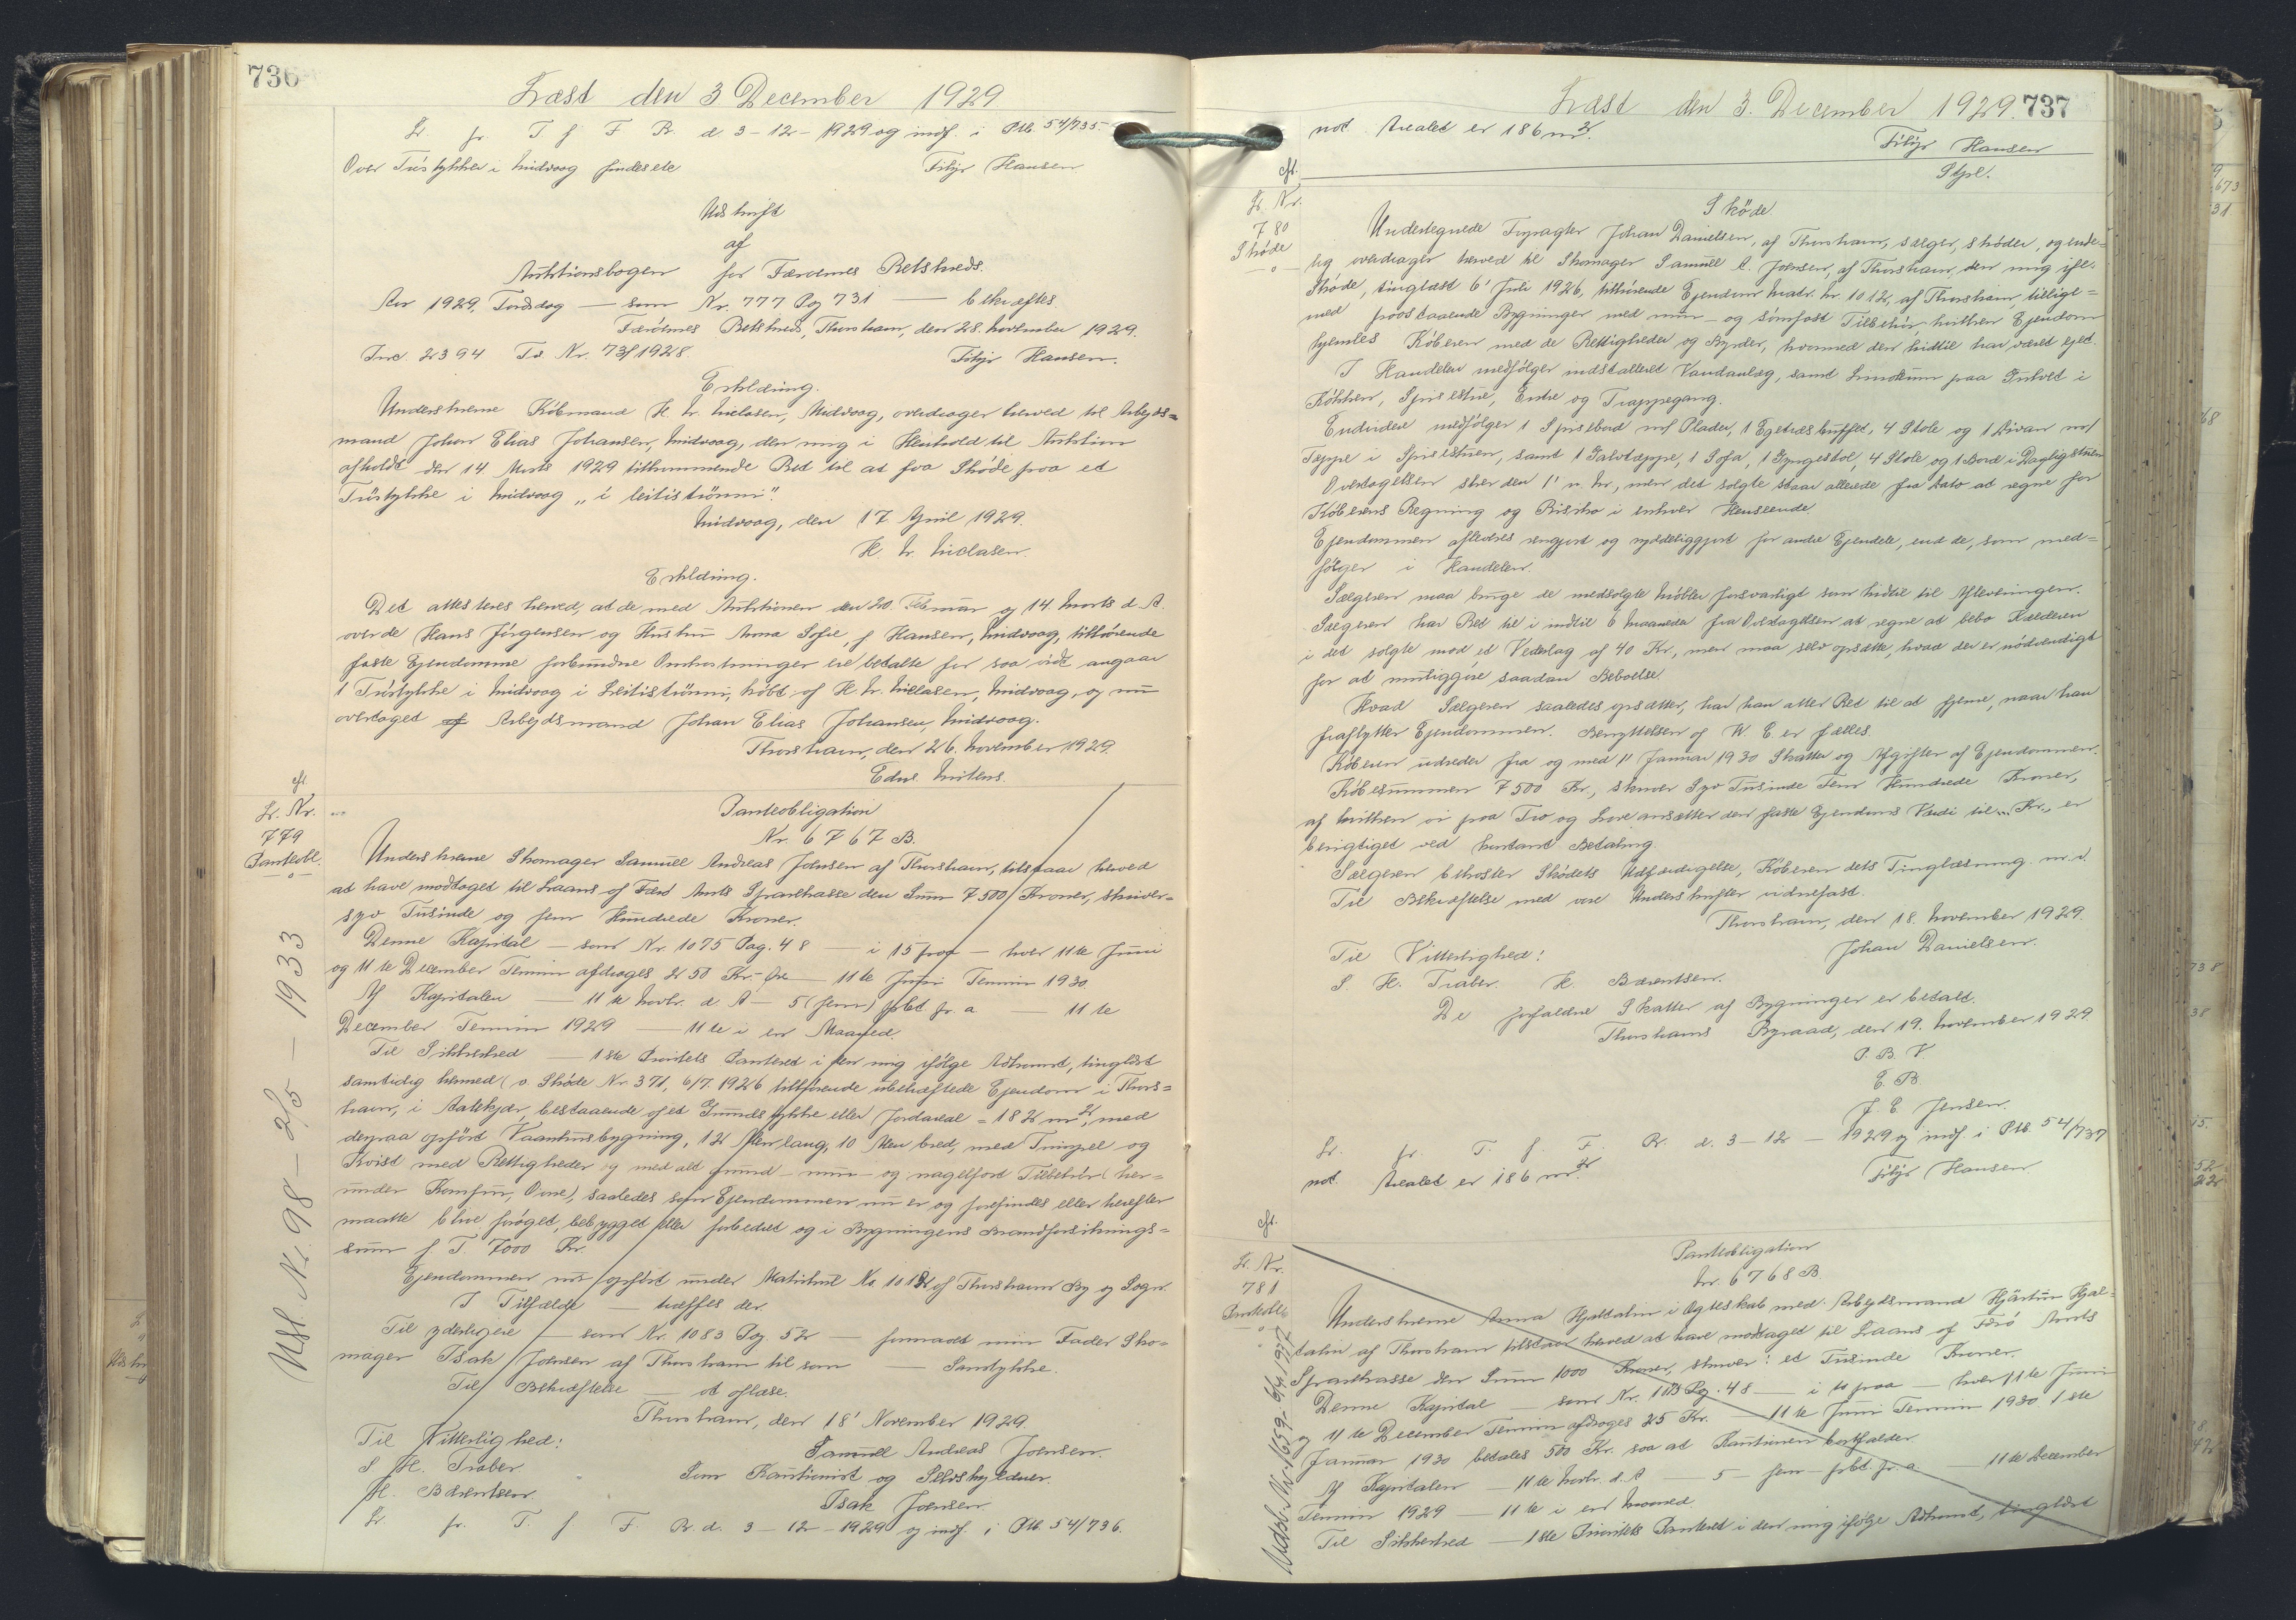 736
Læst den 3 December 1929
Lr. fr. T f F R. d 3-12-1929 og indf. i Ptb. 54/735.
Over Túrstykker i Midvaag findes ele
Filip Hansen
Udskrift
af
Auktionsbogen for Færøernes Retskreds.
Aar 1929, Torsdag — som Nr. 777 Pag 731 — bekræftes
Færöernes Retskreds, Thorshavn, den 28. November 1929.
Inc 2394 Td Nr. 73f/1928.
Filip Hansen.
Erklæring.
Underskrevne Köbmand H. N. Nielasen, Midvaag, overdrager herved til Arbejds=
mand Johan Elias Johansen, Midvaag, den mig i Henhold til Auktion
afholdt den 14 Marts 1929 tilkommende Ret til at faa Sköde paa et
Túrstykke i Midvaag „í leitiströnni".
Midvaag, den 17 April 1929.
H. N. Nielasen.
Erklæring.
Det attesteres herved, at de, med Auktionen den 20. Februar og 14. Marts d. A.
over de Hans Jörgensen og Hustru Anna Sofie f Hansen, Midvaag, tilhørende
faste Ejendomme forbundne Omkostninger ere betalte for saa vidt angaar
1 Túrstykke i Midvaag i Leitiströnni, köbt af H. N. Nielasen, Midvaag, og nu
overtaget af Arbejdsmand Johan Elias Johansen, Midvaag.
Thorshavn, den 26. November 1929.
Edw. Mitens.
cft.
Lr. Nr.
779
Panteobl.
Panteobligation
Nr. 6767 B.
Underskrevne Skomager Samuel Andreas Joensen af Thorshavn, tilstaar herved
at have modtaget til Laans af Færø Amts Sparekasse den Sum 7500 Kroner, skriver=
syv Tusinde og fem Hundrede Kroner.
Denne Kapital — som Nr. 1075 Pag. 48 — i 15 paa — hver 11te Juni
og 11te December Termin afdrages 250 Kr. — 11te Juni Termin 1930
Af Kapitalen — 11te Novbr. d. A — 5 (fem) pCt. pr. a — 11te
December Termin 1929 — 11te i en Maaned.
Til Sikkerhed — 1ste Prioritets Panteret i den mig ifølge Adkomst, tinglæst
samtidig hermed (v. Sköde Nr. 371, 6/7. 1926 tilhørende ubehæftede Ejendom i Thors=
havn, i Aalekjær, bestaaende af et Grundstykke eller Jordareal = 182 m², med
derpaa opført Vaanhusbygning, 12 Alen lang, 10 Alen bred, med Tværsel og
Kvist med Rettigheder og med alt grund- mur- og nagelfast Tilbehör (her=
under Komfur, Ovne), saaledes som Ejendommen nu er og forefindes eller herefter
maatte blive forøget, bebygget eller forbedret og i Bygningens Brandforsikrings=
sum f T. 7000 Kr.
Ejendommen nu opført under Matrikul No. 1012 af Thorshavn By og Sogn.
I Tilfælde — træffes der.
Til yderligere — som Nr. 1083 Pag. 52 — formaaet min Fader Sko=
mager Isak Joensen af Thorshavn til som — Samtykke.
Til Bekræftelse — at aflæse.
Thorshavn, den 18' November 1929.
Til Vitterlighed:
Samuel Andreas Joensen.
S H. Traber.
Som Kautionist og Selvskyldner.
H. Bærentsen.
Isak Joensen.
Lr. fr. T. f F R. d. 3-12-1929 og indf. i Ptb. 54/736.
Udsl. Nr. 98 - 2/5 - 1933
Læst den 3. December 1929.
737
not. Arealet er 186 m².
Filip Hansen
Stpl.
cft.
Lr. Nr.
780
Sköde
Sköde
Undertegnede Johan Danielsen, af Thorshavn, sælger, sköder, og ende=
lig overdrager herved til Skomager Samúel A. Joensen, af Thorshavn, den mig ifl.
Sköde, tinglæst 6' Juli 1926, tilhørende Ejendom Matr. Nr. 1012, af Thorshavn, tillige=
med paastaaende Bygninger med mur- og sömfast Tilbehör, hvilken Ejendom
hjemles Köberen med de Rettigheder og Byrder, hvormed den hidtil har været ejet.
I Handelen medfölger indstalleret Vandanlæg, samt Linoleum paa Gulvet i
Køkken, Spisestue, Entre og Trappegang.
Endvidere medfölger 1 Spisebord m/ Plader, 1 Egetræsbuffet, 4 Stole og 1 Divan m/
Teppe i Spisestuen, samt 1 Gulvtæppe, 1 Sofa, 1 Gyngestol, 4 Stole og 1 Bord i Dagligstuen
Overtagelsen sker den 1' n. M., men det solgte staar allerede fra Dato at regne for
Köberens Regning og Risiko i enhver Henseende.
Ejendommen afleveres rengjort og ryddeliggjort for andre Ejendele, end de, som med=
fölger i Handelen.
Sælgeren maa bruge de medsolgte Möbler forsvarligt som hidtil til Afleveringen.
Sælgeren har Ret til i indtil 6 Maaneder fra Overtagelsen at regne at bebo Kælderen
i det solgte mod et Vederlag af 40 Kr., men maa selv opsætte, hvad der er nödvendigt
for at muliggöre saadan Beboelse.
Hvad Sælgeren saaledes opsætter, har han atter Ret til at fjerne, naar han
fraflytter Ejendommen. Benyttelsen af W. C er fælles.
Köberen udreder fra og med 1' Januar 1930 Skatter og Afgifter af Ejendommen.
Köbesummen 7500 Kr., skriver Syv Tusinde Fem Hundrede Kroner,
af hvilken vi paa Tro og Love ansætter den faste Ejendoms Værdi til „ Kr., er
berigtiget ved kontant Betaling.
Sælgeren bekoster Skødets Udfærdigelse, Køberen dets Tinglæsning m. v.
Til Bekræftelse med vore Underskrifter vidnefast.
Thorshavn, den 18. November 1929.
Til Vitterlighed:
Johan Danielsen.
S H. Traber. H. Bærentsen.
De forfaldne Skatter af Bygninger er betalt.
Thorshavns Byraad, den 19. November 1929
P. B. V
E. B.
J. E. Jensen.
Lr. fr. T. f. F. R. d. 3-12-1929 og indf. i Ptb. 54/737
not. Arealet er 186 m².
Filip Hansen
cft.
Lr. Nr.
781
Panteobl.
Panteobligation
Nr. 6768 B.
Underskrevne Anna Hjaltalin i Ægteskab med Arbejdsmand Kjartan Hjal=
talin af Thorshavn tilstaar herved at have modtaget til Laans af Færö Amts
Sparekasse den Sum 1000 Kroner, skriver: et Tusinde Kroner.
Denne Kapital — som Nr. Pg. 48 — i to paa — hver 11te Juni
og 11te December Termin afdrages 25 Kr. — 11te Juni Termin 1930 1ste
Januar 1930 betales 500 Kr. saa at Kautionen bortfalder
Af Kapitalen — 11te Novbr. d. A 5 - fem - pCt. pr. a. — 11te December
Termin 1929 — 11te i en Maaned.
Til Sikkerhed — 1ste Prioritets Panteret i den mig ifölge Adkomst, tinglæst